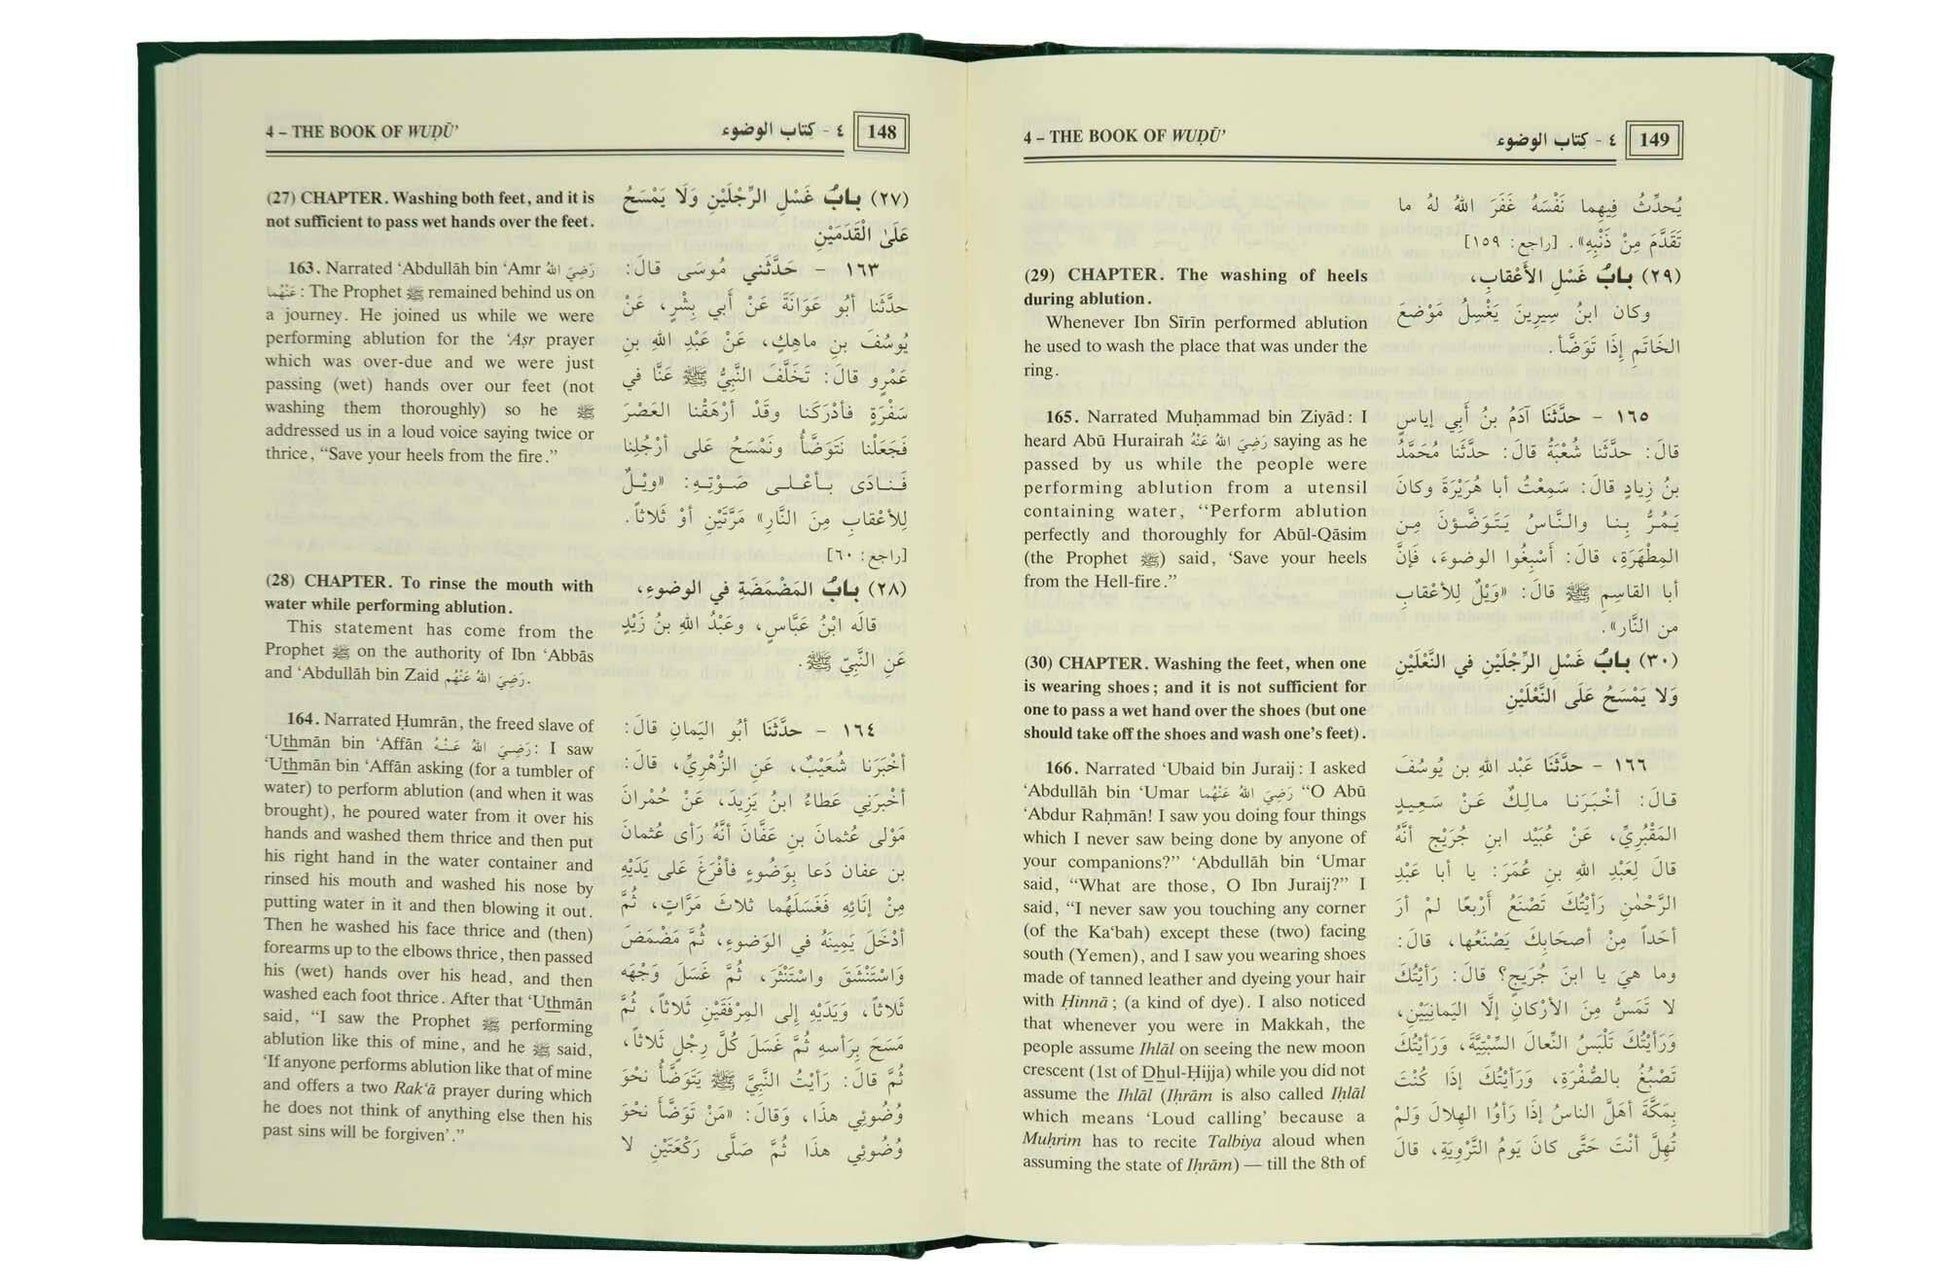 4 – THE BOOK OF WUḌŪ’
٤ - كتاب الوضوء
148
(27) CHAPTER. Washing both feet, and it is
not sufficient to pass wet hands over the feet.
163. Narrated ‘Abdullāh bin ‘Amr رَضِيَ اللهُ
عَنْهُما: The Prophet ﷺ remained behind us on
a journey. He joined us while we were
performing ablution for the ‘Aṣr prayer
which was over-due and we were just
passing (wet) hands over our feet (not
washing them thoroughly) so he ﷺ
addressed us in a loud voice saying twice or
thrice, “Save your heels from the fire.”
(28) CHAPTER. To rinse the mouth with
water while performing ablution.
This statement has come from the
Prophet ﷺ on the authority of Ibn ‘Abbās
and ‘Abdullāh bin Zaid رَضِيَ اللهُ عَنْهُم.
164. Narrated Ḥumrān, the freed slave of
‘Uthmān bin ‘Affān رَضِيَ اللهُ عَنْهُ: I saw
‘Uthmān bin ‘Affān asking (for a tumbler of
water) to perform ablution (and when it was
brought), he poured water from it over his
hands and washed them thrice and then put
his right hand in the water container and
rinsed his mouth and washed his nose by
putting water in it and then blowing it out.
Then he washed his face thrice and (then)
forearms up to the elbows thrice, then passed
his (wet) hands over his head, and then
washed each foot thrice. After that ‘Uthmān
said, “I saw the Prophet ﷺ performing
ablution like this of mine, and he ﷺ said,
‘If anyone performs ablution like that of mine
and offers a two Rak‘ā prayer during which
he does not think of anything else then his
past sins will be forgiven’.”
(٢٧) بابُ غَسْلِ الرِّجْلَيْنِ وَلَا يَمْسَحُ
عَلَىٰ الْقَدَمَيْنِ
١٦٣ - حَدَّثَني مُوسَى قالَ:
حدَّثَنا أبُو عَوَانَةَ عَنْ أبي بِشْرٍ، عَنْ
يُوسُفَ بنِ ماهِكٍ، عَنْ عَبْدِ اللهِ بنِ
عَمْرٍو قالَ: تَخَلَّفَ النَّبيُّ ﷺ عَنَّا في
سَفْرَةٍ فأدْرَكَنا وقَدْ أرْهَقْنا العَصْرَ
فَجَعَلْنا نَتَوَضَّأُ ونَمْسَحُ عَلى أرْجُلِنا
فَنادَى بأعْلى صَوْتِهِ: «ويْلٌ
لِلأعْقابِ مِنَ النَّارِ» مَرَّتَيْنِ أوْ ثَلاثاً.
[راجع: ٦٠]
(٢٨) بابُ المَضْمَضَةِ في الوضوءِ،
قالَه ابْنُ عَبَّاسٍ، وعَبْدُ اللهِ بنُ زَيْدٍ
عَنِ النَّبيِّ ﷺ.
١٦٤ - حدَّثَنَا أبُو اليَمانِ قالَ:
أخْبَرَنا شُعَيْبٌ، عَنِ الزُّهْرِيِّ، قالَ:
أخْبَرَني عَطاءُ ابنُ يَزِيدَ، عَنْ حُمْرانَ
مَوْلى عُثمانَ بنِ عَفَّانَ أنَّهُ رَأى عُثمانَ
بن عفان دَعا بِوَضُوءٍ فأفْرَغَ عَلى يَدَيْهِ
مِنْ إنَائِهِ فَغَسَلَهُما ثلاثَ مَرَّاتٍ، ثُمَّ
أدْخَلَ يَمِينَهُ في الوَضوءِ، ثُمَّ مَضْمَضَ
وَاسْتَنْشَقَ واسْتَنْثَرَ، ثُمَّ غَسَلَ وَجْهَه
ثَلاثاً، وَيَدَيْهِ إلى المِرْفَقَيْنِ ثَلاثاً، ثُمَّ
مَسَحَ بِرَأسِهِ ثُمَّ غَسَلَ كُلَّ رِجْلٍ ثَلاثاً،
ثُمَّ قالَ: رَأيْتُ النَّبيَّ ﷺ يَتَوَضَّأُ نَحْوَ
وُضُوئِي هذَا، وَقالَ: «مَنْ تَوَضَّأَ نَحْوَ
وُضُوئِي هذَا ثُمَّ صَلَّى رَكْعَتَيْنِ لا
4 – THE BOOK OF WUḌŪ’
٤ - كتاب الوضوء
149
(29) CHAPTER. The washing of heels
during ablution.
Whenever Ibn Sīrīn performed ablution
he used to wash the place that was under the
ring.
165. Narrated Muḥammad bin Ziyād: I
heard Abū Hurairah رَضِيَ اللهُ عَنْهُ saying as he
passed by us while the people were
performing ablution from a utensil
containing water, “Perform ablution
perfectly and thoroughly for Abūl-Qāsim
(the Prophet ﷺ) said, ‘Save your heels
from the Hell-fire.”
(30) CHAPTER. Washing the feet, when one
is wearing shoes; and it is not sufficient for
one to pass a wet hand over the shoes (but one
should take off the shoes and wash one’s feet).
166. Narrated ‘Ubaid bin Juraij: I asked
‘Abdullāh bin ‘Umar رَضِيَ اللهُ عَنْهُما “O Abū
‘Abdur Raḥmān! I saw you doing four things
which I never saw being done by anyone of
your companions?” ‘Abdullāh bin ‘Umar
said, “What are those, O Ibn Juraij?” I
said, “I never saw you touching any corner
(of the Ka‘bah) except these (two) facing
south (Yemen), and I saw you wearing shoes
made of tanned leather and dyeing your hair
with Ḥinnā; (a kind of dye). I also noticed
that whenever you were in Makkah, the
people assume Ihlāl on seeing the new moon
crescent (1st of Dhul-Ḥijja) while you did not
assume the Ihlāl (Iḥrām is also called Iḥlāl
which means ‘Loud calling’ because a
Muḥrim has to recite Talbiya aloud when
assuming the state of Iḥrām) — till the 8th of
يُحدِّثُ فِيهِما نَفْسَهُ غَفَرَ اللهُ لهُ ما
تَقَدَّمَ مِنْ ذَنْبِهِ». [راجع: ١٥٩]
(٢٩) بابُ غَسْلِ الأَعْقابِ،
وكان ابنُ سِيرِينَ يَغْسِلُ مَوْضعَ
الخَاتَمِ إذَا تَوَضَّأ.
١٦٥ - حدَّثَنَا آدَمُ بنُ أبي إياسٍ
قالَ: حدَّثَنا شُعْبَةُ قالَ: حدَّثَنا مُحَمَّدُ
بنُ زِيادٍ قالَ: سَمِعْتُ أبا هُرَيْرَةَ وكانَ
يَمُرُّ بِنا والنَّاسُ يَتَوَضَّؤنَ مِن
المِطْهَرَةِ، قالَ: أَسْبِغُوا الوضوءَ، فَإنَّ
أبا القاسِمِ ﷺ قالَ: «وَيْلٌ لِلأعْقابِ
من النَّارِ».
(٣٠) بابُ غَسْلِ الرِّجْلَيْنِ في النَّعْلَيْنِ
وَلا يَمْسَحُ عَلَى النَّعْلَيْنِ
١٦٦ - حدَّثَنَا عَبْد اللهِ بن يُوسُفَ
قالَ: أخْبَرَنا مالِكٌ عَنْ سَعِيدٍ
المَقْبُرِيِّ، عَنْ عُبَيْد ابنِ جُرَيْج أنَّهُ
قالَ لِعَبْدِ اللهِ بنِ عُمَرَ: يا أبا عَبْدِ
الرَّحْمٰنِ رَأيْتُكَ تَصْنَعُ أرْبَعًا لمْ أرَ
أحَداً مِنْ أصحَابِكَ يَصْنَعُها، قالَ:
وما هيَ يا ابنَ جُرَيجٍ؟ قالَ: رَأيْتُكَ
لا تَمَسُّ مِنَ الأرْكانِ إلَّا اليَمانِيَيْنِ،
وَرَأيْتُكَ تَلْبَسُ النِّعالَ السِّبْتِيَّةَ، وَرَأيْتُكَ
تَصْبُغُ بالصُّفْرَةِ، وَرَأيْتُكَ إذَا كُنْتَ
بِمَكَّةَ أهَلَّ الناسُ إذَا رَأوُا الهِلالَ وَلمْ
تُهِلَّ أنْتَ حَتَّى كانَ يَومُ التَّرْوِيَةِ، قالَ